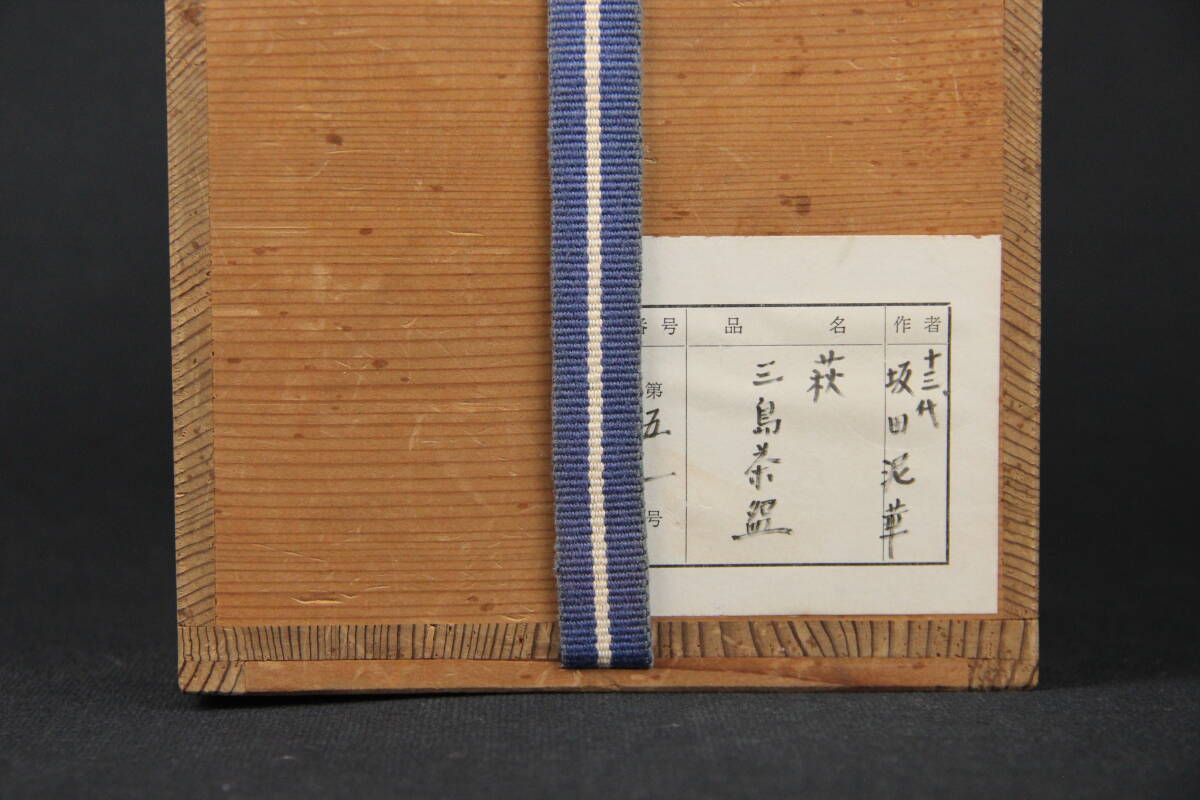 作者
十三代
坂田泥華
品名
萩
三島茶盌
番号
第五一号